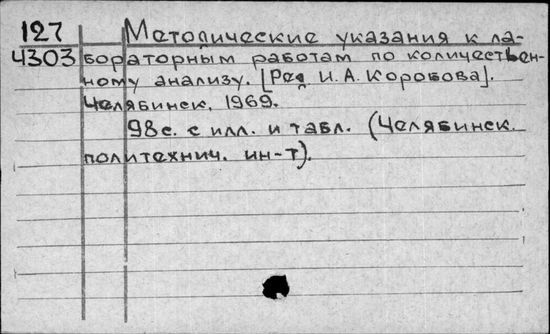 127 Методические указания к ла-
4303 бораторным работам по количествен-
ному анализу. [Ред И. А. Коробова].
Челябинск, 1969.
98с. с илл. и табл. (Челябинск.
политехнич. ин-т).